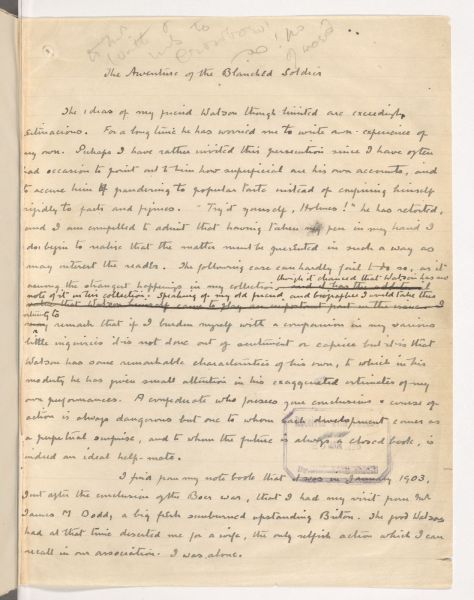 The Adventure of the Blanched Soldier
The ideas of my friend Watson though limited are exceedingly
pertinacious. For a long time he has worried me to write an experience of
my own. Perhaps I have rather invited this persecution since I have often
had occasion to point out to him how superficial are his own accounts, and
to accuse him of pandering to popular taste instead of confining himself
rigidly to facts and figures. "Try it yourself, Holmes!" he has retorted,
and I am compelled to admit that having taken my pen in my hand I
do begin to realise that the matter must be presented in such a way as
may interest the reader. The following case can hardly fail to do so, as it is
among the strangest happenings in my collection
though it chanced that Watson has no
note of it in his collection. Speaking of my old friend and biographer I would take this
opportunity to
remark that if I burden myself with a companion in my various
little inquiries it is not done out of sentiment or caprice but it is that
Watson has some remarkable characteristics of his own, to which in his
modesty he has given small attention in his exaggerated estimates of my
own performances. A confederate who foresees your conclusions & course of
action is always dangerous but one to whom each development comes as
a perpetual surprise, and to whom the future is always a closed book, is
indeed an ideal help-mate.
I find from my note book that it was in January 1903,
just after the conclusion of the Boer War, that I had my visit from Mr
James M. Dodd, a big fresh sunburned upstanding Briton. The good Watson
had at that time deserted me for a wife, the only selfish action which I can
recall in our association. I was alone.